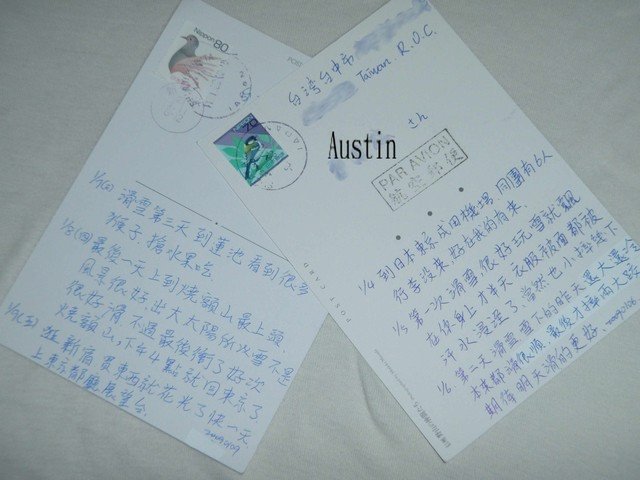 NIPPON 80
POST
1/7(三) 滑雪第三天到蓮池看到很多
猴子,搶水果吃
1/8(四) 最後一天上到燒額山最上頭
風景很好,出大太陽所以雪不是
很好滑 不過最後衝了好次
燒額山,下午4點就回東京了
逛新宿買東西就花光了快一天
上東京都廳展望台
20090109
台灣台中市
Taiwan. R.O.C.
70
Austin
PAR AVION
航空郵便
POST CARD
1/4 到日本東京成田機場 同團有6人
行李沒來,好在我的有來.
1/5 第一次滑雪很好玩雪就飄
在你身上才半天衣服被面都被
汗水浸溼了當然也小摔幾下
1/6. 第二天滑雪雪下的昨天還大還冷
本來都滑很順 最後才摔兩大跤
期待明天滑的更好.
20090106